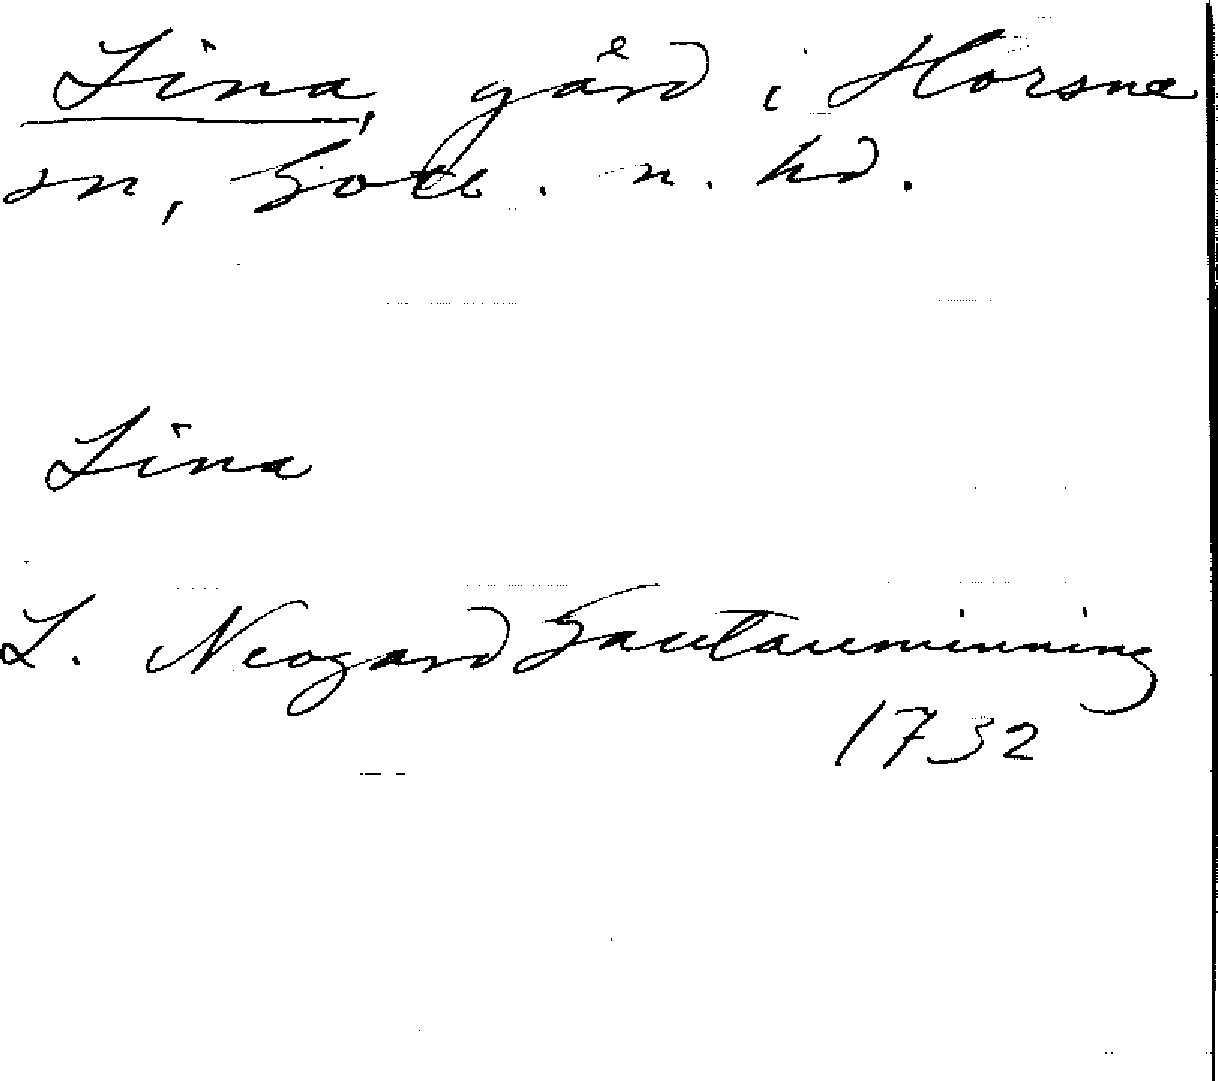 Lina, gård i Horsne
sn, Gotl. n. hd.
Lina
L. Neogard Gautauminning
1732